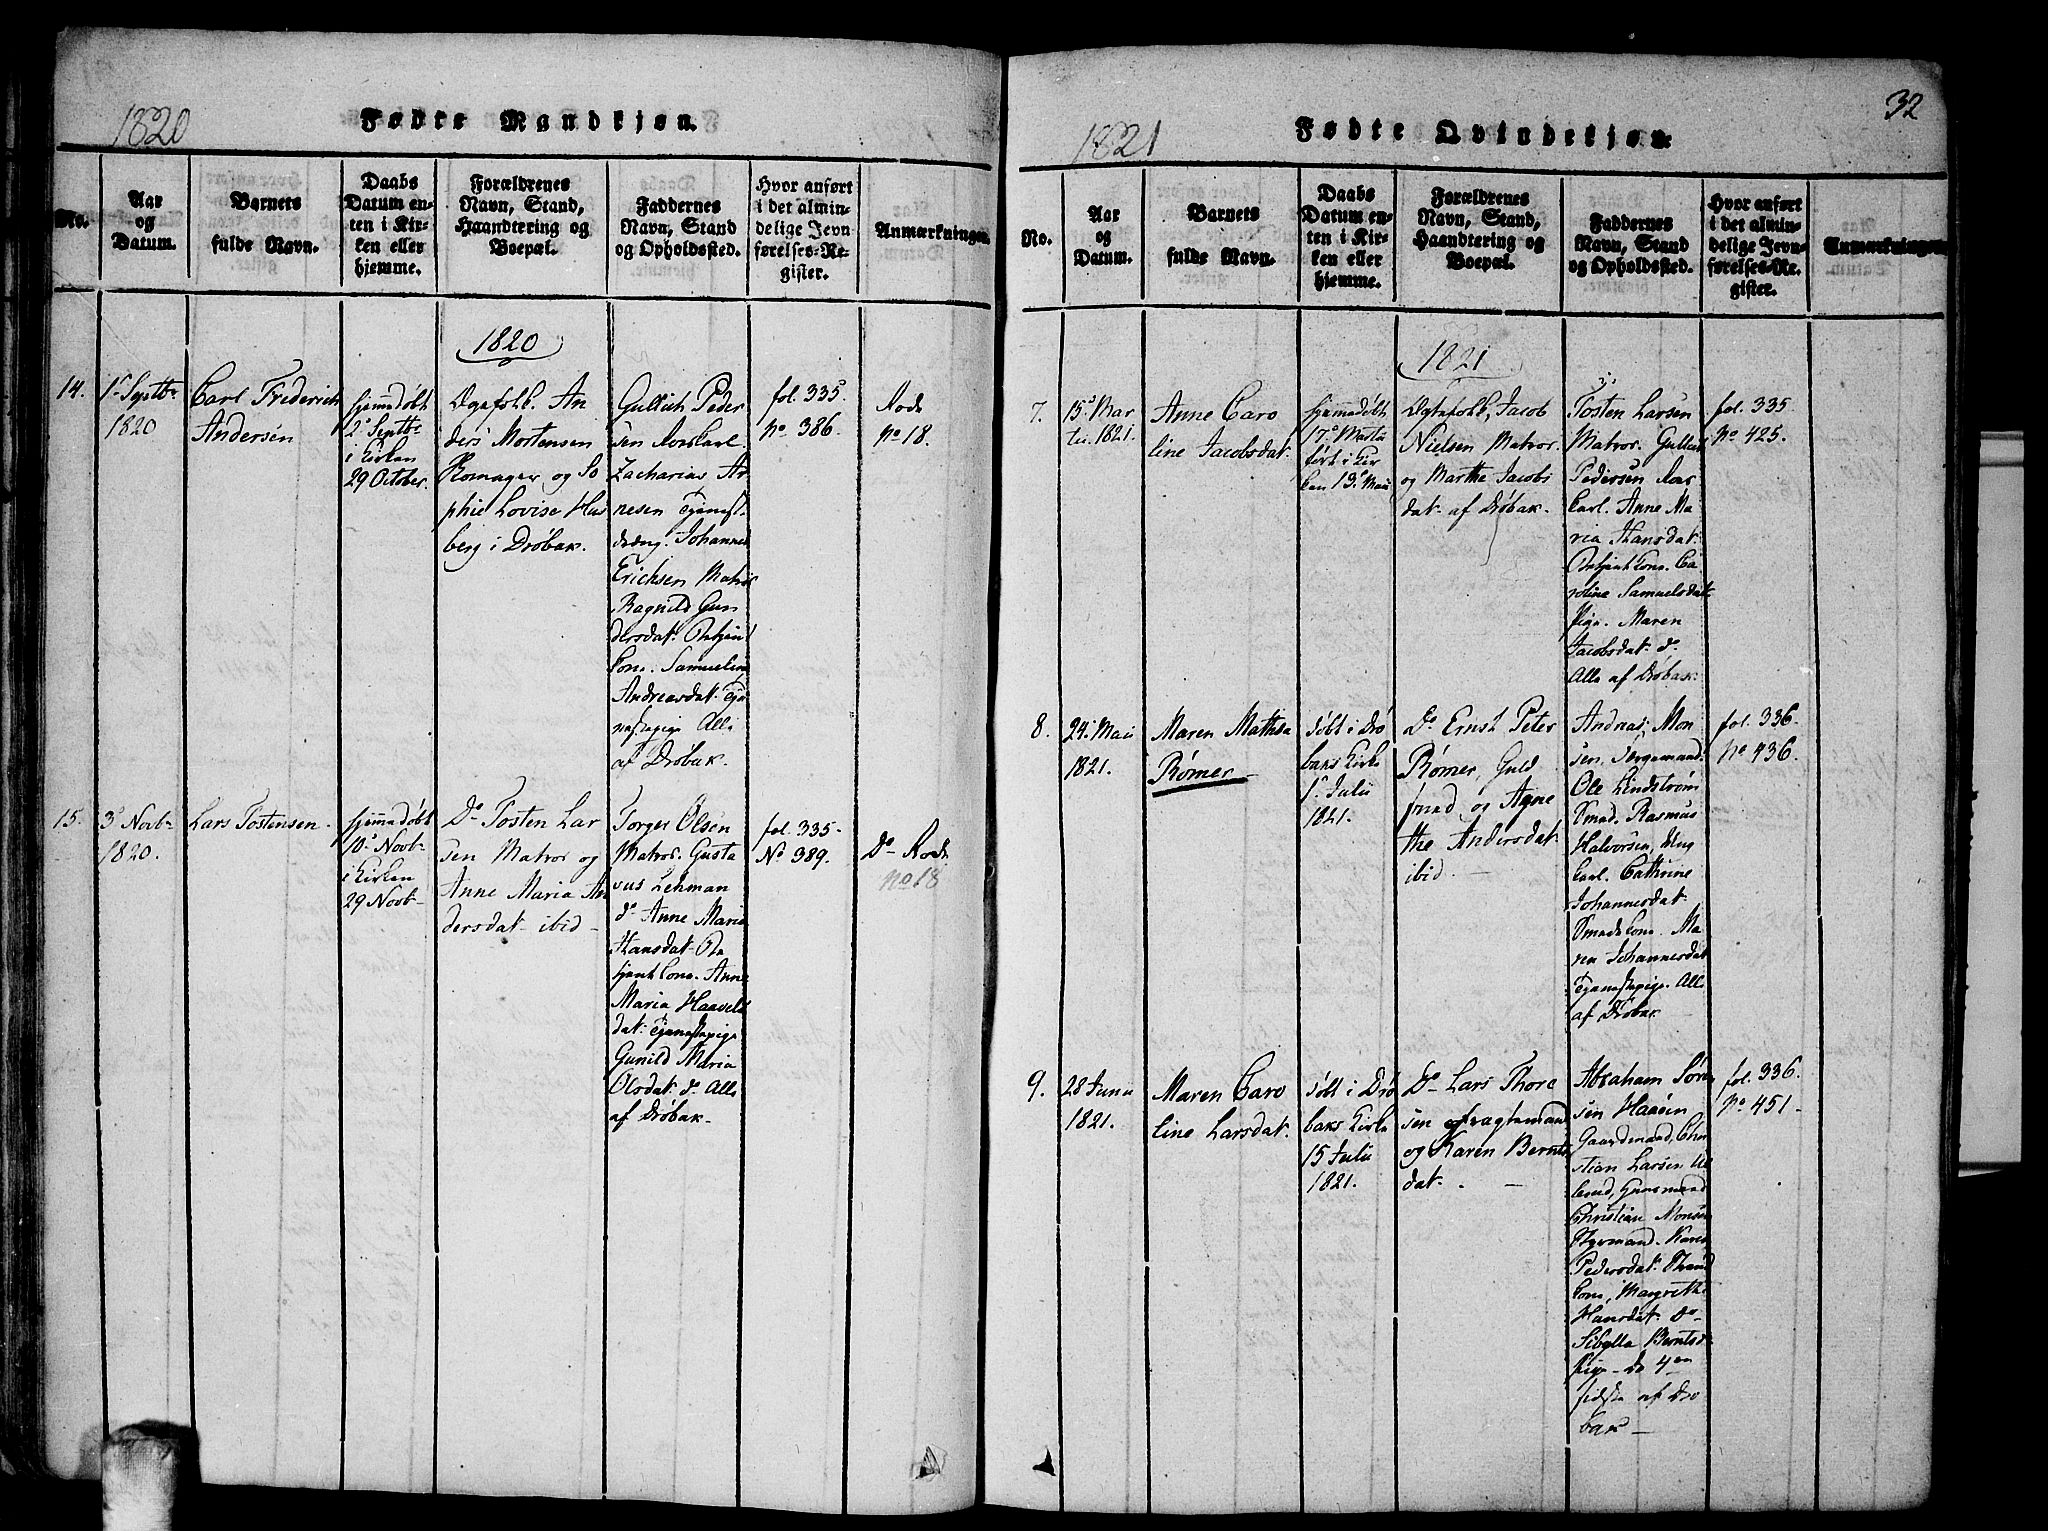 1820
Fødte Mandkjøn.
No.
Aar
og
Datum.
Barnets
fulde Navn.
Daabs
Datum en-
ten i Kir-
ken eller
hjemme.
Forældrenes
Navn, Stand,
Haandtering og
Boepæl.
Faddernes
Navn, Stand
og Opholdsted.
Hvor anført
i det almin-
delige Jevn
førelses-Re-
gister.
Anmærkninger.
1820
14.
1 Septbr
1820
Carl Frederich
Andersen
hjemmedøbt
2 Septbr
i Kirken
29 October.
Ægtefolk. An
ders Mortensen
Romager og So
phie Lovise Hus
berg i Drøbak.
Gullich Peder
sen Roerkarl.
Zacharias Ar
nesen Tjenest
dreng. Johannes
Erichsen Matros
Ragnild Gun
dersdat.
kone. Samueline
Andreasdat. Tje
nestepige Alle
af Drøbak.
fol. 335.
No 386.
Rode
No 18.
15.
3 Novbr
1820.
Lars Tostensen.
hjemmedøbt
10 Novbr
i Kirken
29 Novbr
Do Tosten Lar
sen Matros og
Anne Maria An
dersdat ibid -
Torger Olsen
Matros. Gusta
vus Lehman
do Anne Maria
Hansdat.
kone. Anne
Maria Haavels
dat. Tjenestepige
Gunild Maria
Olsdat. do Alle
af Drøbak.
fol. 335.
No 389.
Do Rode
No 18
1821
Fødte Qvindekjøn.
32
No.
Aar
og
Datum.
Barnets
fulde Navn.
Daabs
Datum en-
ten i Kir-
ken eller
hjemme.
Forældrenes
Navn, Stand,
Haandtering og
Boepæl.
Faddernes
Navn, Stand
og Opholdsted.
Hvor anført
i det almin-
delige Jevn
førelses-Re-
gister.
Anmærkninger
1821
7.
15 Mar
tii. 1821.
Anne Caro
line Jacobsdat.
hjemmedøbt
17 Martii
ført i Kir
ken 13 Maii
Ægtefolk, Jacob
Nielsen Matros.
og Marthe Jacobs
dat. af Drøbak.
Tosten Larsen
Matros. Gullich
Pedersen Roer
karl. Anne Ma
ria Hansdat.
kone. Ca
roline Samuelsdat
Pige. Maren
Jacobsdat. do
Alle af Drøbak.
fol. 335
No 425.
8.
24 Maii
1821.
Maren Mathea
Rømer
døbt i Drø
baks Kirke
1 Julii
1821.
Do Ernst Peter
Rømer, Guld
smed og Agne
the Andersdat.
ibid.
Andreas Mon
sen
Ole Lindstrøm
Smed. Rasmus
Halvorsen, Ung
karl. Cathrine
Johannesdat.
Smedekone. Ma
ren Johannesdat
Tjenestepige. Alle
af Drøbak.
fol. 336.
No 436.
9.
28 Junii
1821.
Maren Caro
line Larsdat.
døbt i Drø
baks Kirke
15 Julii
1821.
Do Lars Thore
sen Fragtemand
og Karen Bernts
dat.
Abraham Søren
sen Haaøen
Gaardmand, Chri
stian Larsen
Christian Monsen
Styrmand. Karen
Pedersdat. Strand
kone, Margrethe
Hansdat. do
Sibylla Berntsd.
Pige - de 4en
sidste af Drø
bak -
fol. 336.
No 451.